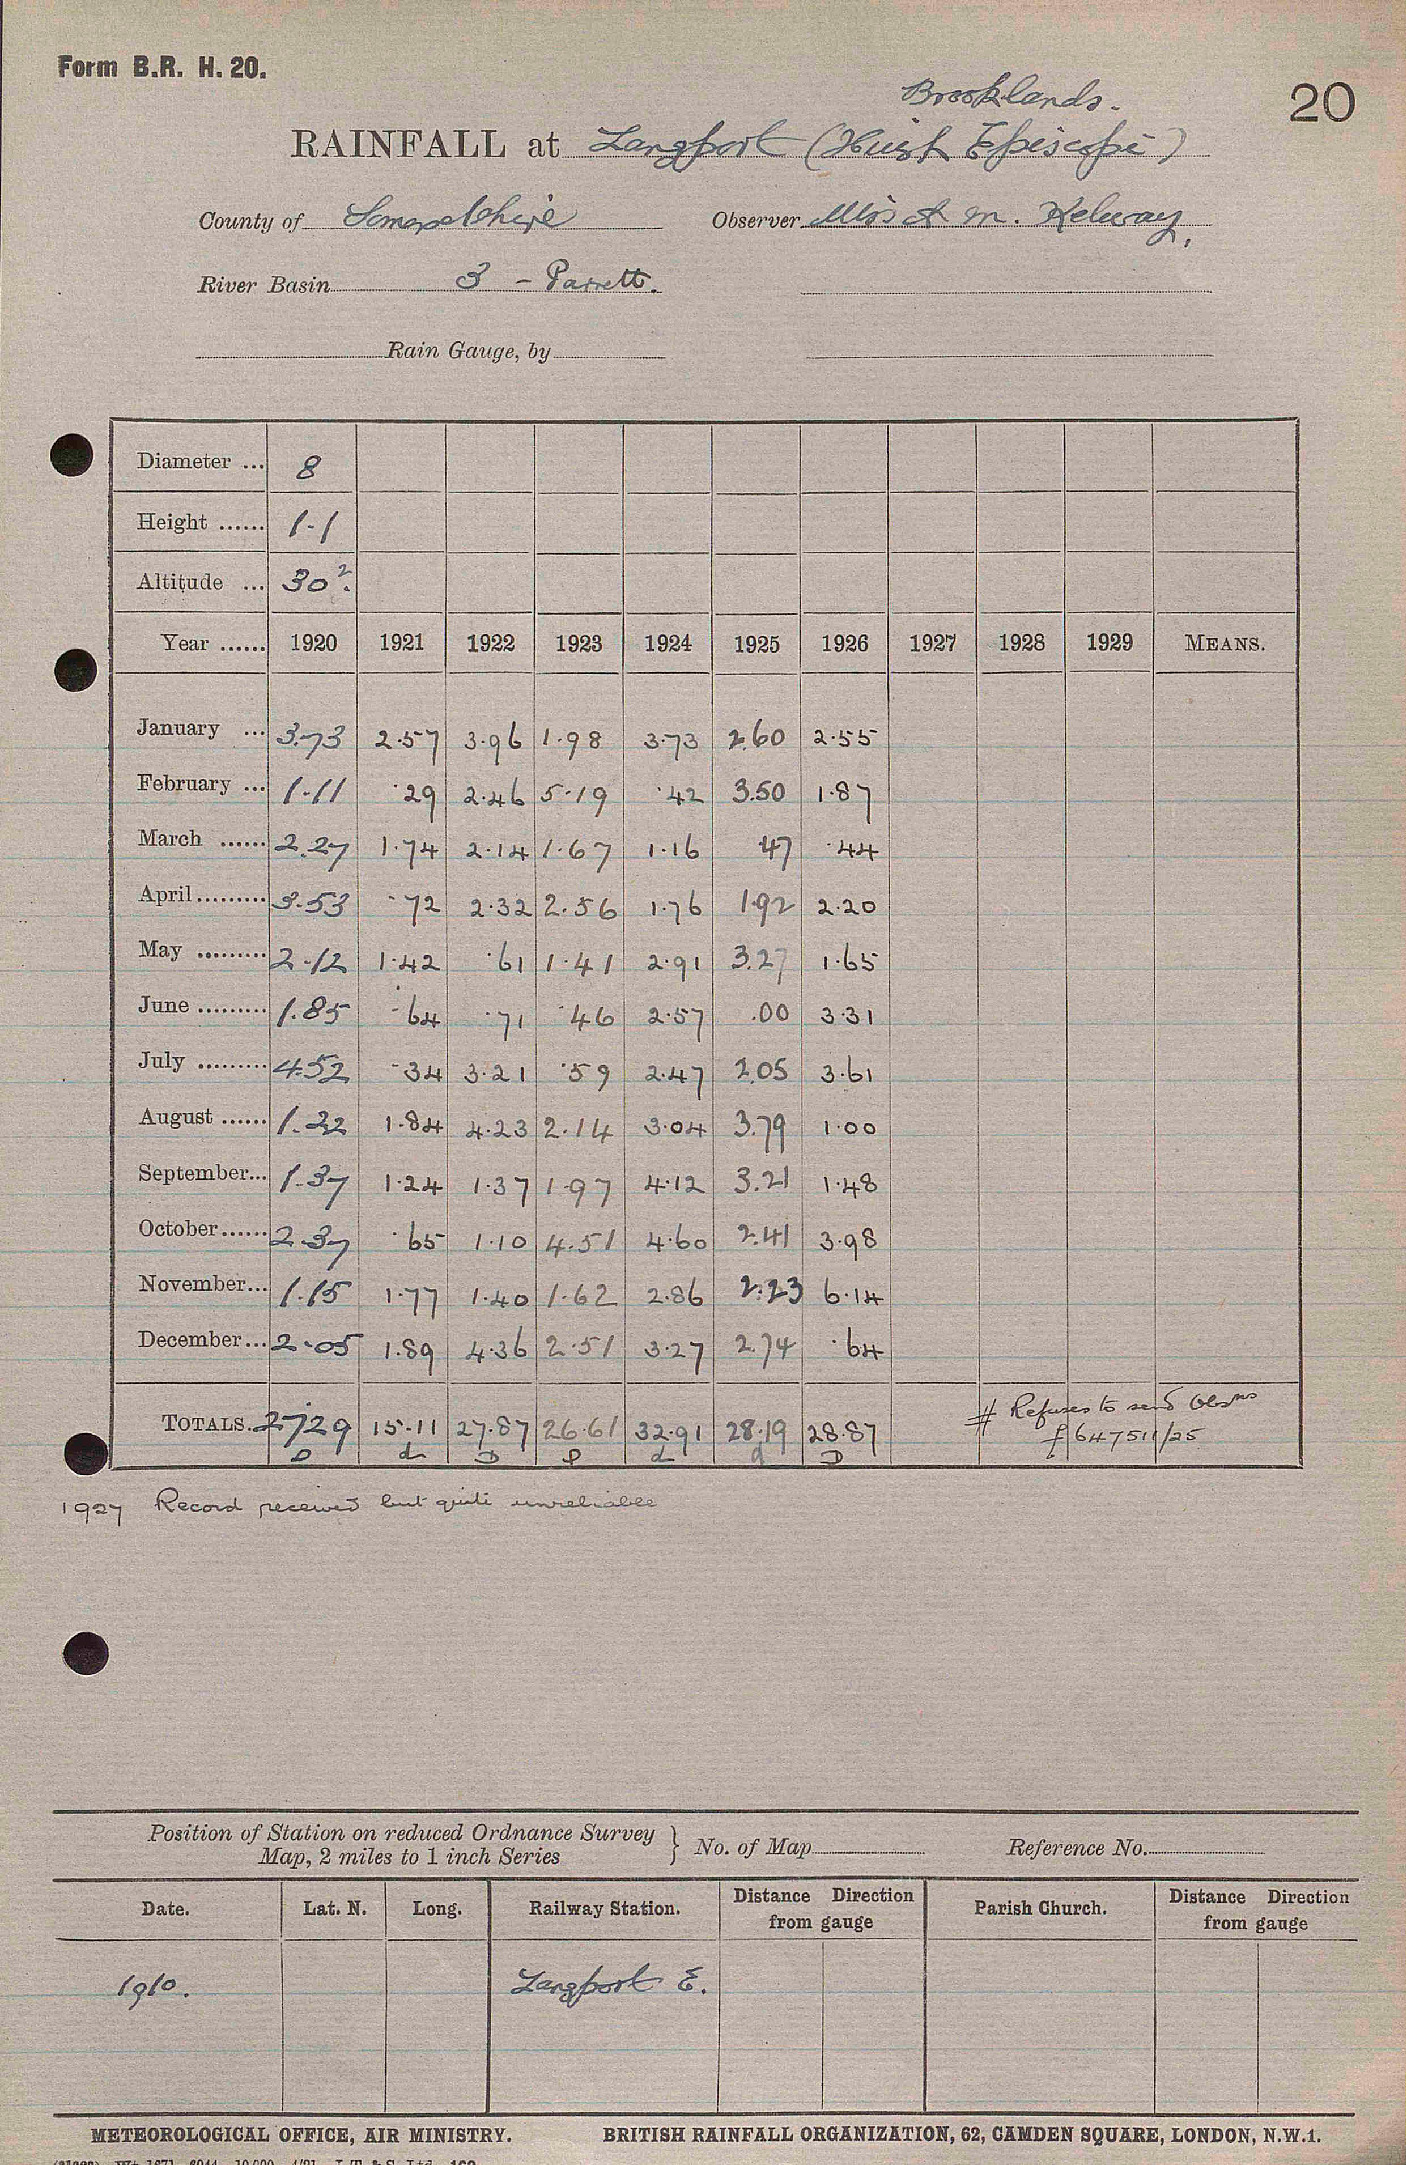 Form B.R. H. 20.
20
Brooklands.
RAINFALL at Langport (Huish Episcopi)
County of Somersetshire Observer Miss A. M. Kelway.
River Basin 3 - Parrett.
Rain Gauge, by
Diameter ... 8
Height ...... 1-1
Altitude ... 30 ?.
Year ...... 1920 1921 1922 1923 1924 1925 1926 1927 1928 1929 MEANS.
January ... 3.73 2.57 3.96 1.98 3.73 2.60 2.55
February ... 1.11 .29 2.46 5.19 .42 3.50 1.87
March ...... 2.27 1.74 2.14 1.67 1.16 .47 .44
April ......... 3.53 .72 2.32 2.56 1.76 1.92 2.20
May ......... 2.12 1.42 .61 1.41 2.91 3.27 1.65
June ......... 1.85 .64 .71 .46 2.57 .00 3.31
July ......... 4.52 .34 3.21 .59 2.47 2.05 3.61
August ...... 1.22 1.84 4.23 2.14 3.04 3.79 1.00
September... 1.37 1.24 1.37 1.97 4.12 3.21 1.48
October...... 2.37 .65 1.10 4.51 4.60 2.41 3.98
November... 1.15 1.77 1.40 1.62 2.86 2.23 6.14
December... 2.05 1.89 4.36 2.51 3.27 2.74 .64
TOTALS. 27.29 15.11 27.87 26.61 32.91 28.19 28.87
D d D D d d D
# Refuses to send Obsns
f 647511/25
1927 Record received but quite unreliable
Position of Station on reduced Ordnance Survey
Map, 2 miles to 1 inch Series } No. of Map Reference No.
Date. Lat. N. Long. Railway Station. Distance Direction from gauge Parish Church. Distance Direction from gauge
1910. Langport E.
METEOROLOGICAL OFFICE, AIR MINISTRY. BRITISH RAINFALL ORGANIZATION, 62, CAMDEN SQUARE, LONDON, N.W.1.